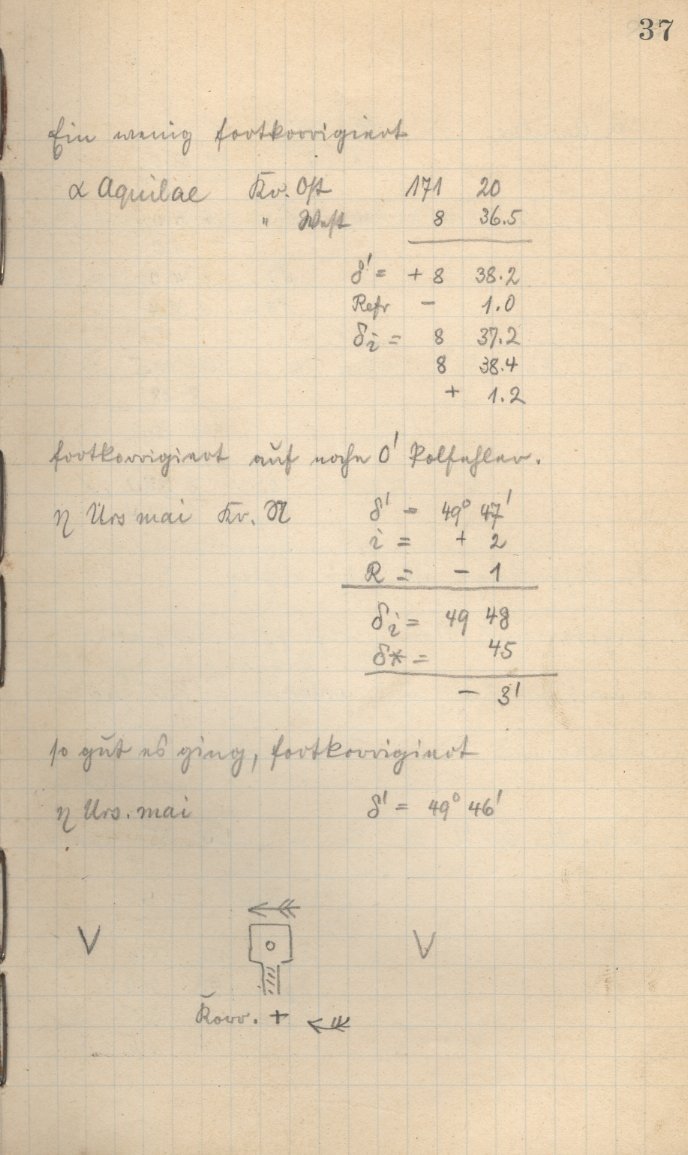 37
Ein wenig fortkorrigiert
α Aquilae Kr. Ost 171 20
" West 8 36.5
δ' = + 8 38.2
Refr − 1.0
δi = 8 37.2
8 38.4
+ 1.2
fortkorrigiert auf nahe 0' Polfehler.
η Urs mai Kr. W δ' = 49° 47'
i = + 2
R = − 1
δi = 49 48
δ* = 45
− 3'
so gut es ging, fortkorrigiert
η Urs. mai δ' = 49° 46'
V V
Korr. +